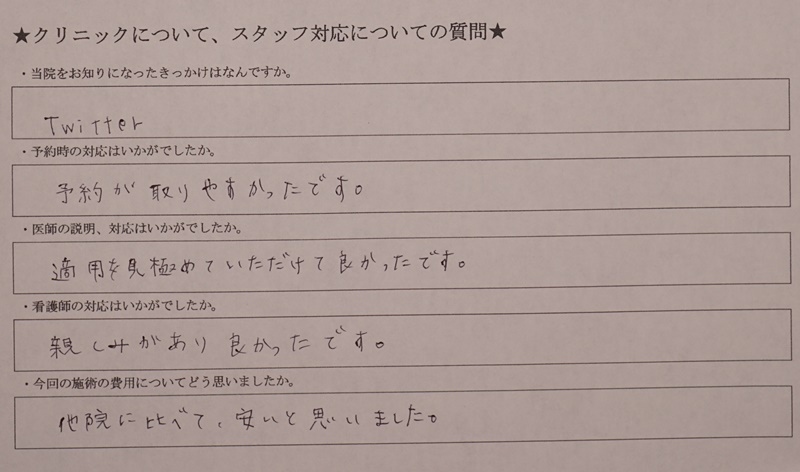 ★クリニックについて、スタッフ対応についての質問★
・当院をお知りになったきっかけはなんですか。
Twitter
・予約時の対応はいかがでしたか。
予約が取りやすかったです。
・医師の説明、対応はいかがでしたか。
適用を見極めていただけて良かったです。
・看護師の対応はいかがでしたか。
親しみがあり良かったです。
・今回の施術の費用についてどう思いましたか。
他院に比べて、安いと思いました。